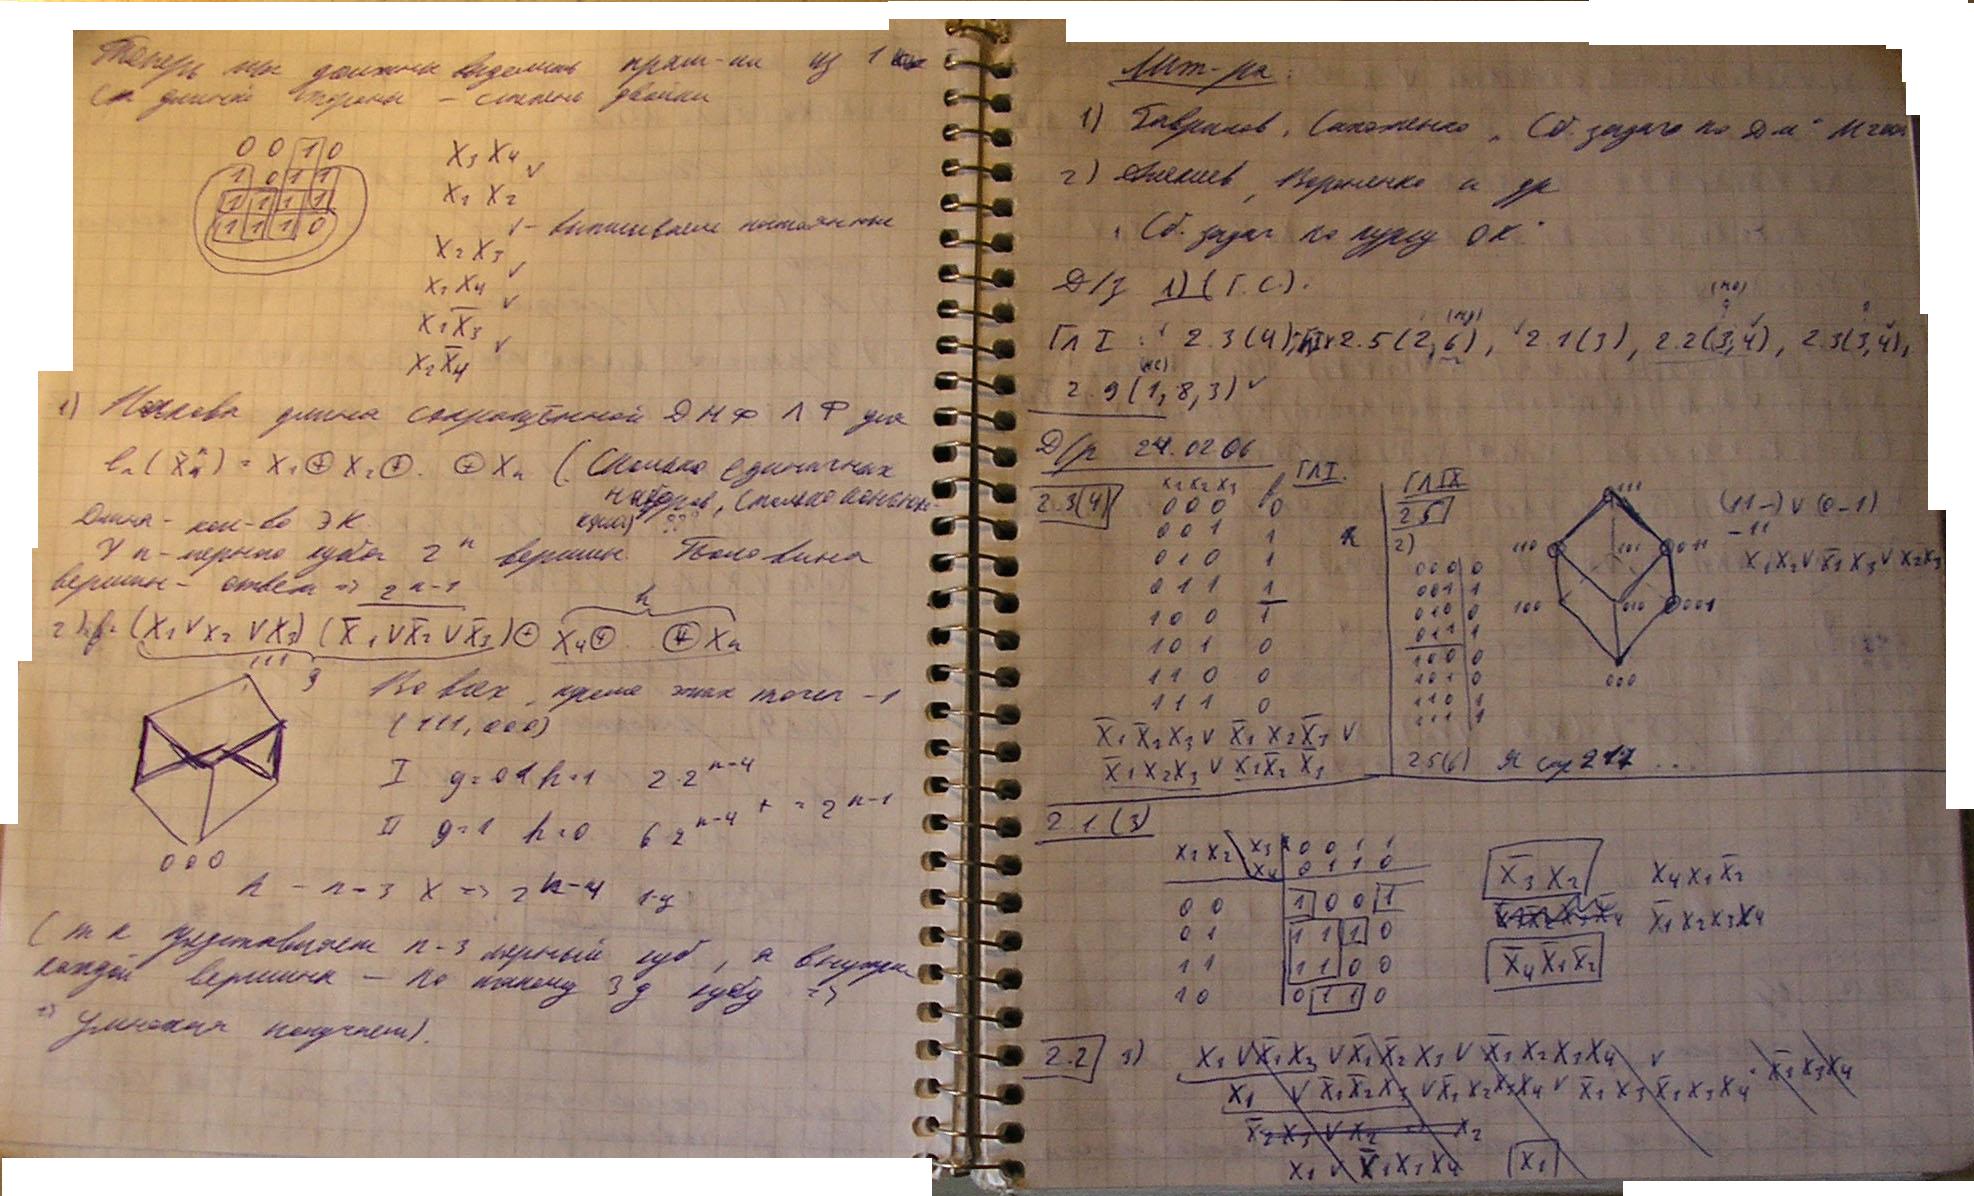 Теперь мы должны выделить прям-ки из 1
длиной стороны – степень двойки
0 0 1 0
1 0 1 1
1 1 1 1
1 1 1 0
X₃ X₄ ∨
X₁ X₂
∨ – выписываем постоянные
X₂ X₃ ∨
X₁ X₄ ∨
X₁ X̄₃ ∨
X₂ X̄₄
1) Какова длина сокращённой ДНФ ЛФ для
lₙ(x̃ⁿ) = X₁ ⊕ X₂ ⊕ . ⊕ Xₙ (Сколько единичных
наборов, столько конъюнк-
ций) ???
Длина – кол-во ЭК.
У n-мерного куба 2ⁿ вершин. Половина
вершин – ответ => 2ⁿ⁻¹
h
2) f= (X₁ ∨ X₂ ∨ X₃) (X̄₁ ∨ X̄₂ ∨ X̄₃) ⊕ X₄ ⊕ . . ⊕ Xₙ
111 g
Во всех, кроме этих точек – 1
(111, 000)
I g=0 h=1 2·2ⁿ⁻⁴
II g=1 h=0 6·2ⁿ⁻⁴ + = 2ⁿ⁻¹
000
h – n-3 X => 2ⁿ⁻⁴ 1-ц
(т к представляет n-3 мерный куб, а внутри
каждой вершины – по такому 3д кубу =>
=> Умножая получаем).
Лит-ра:
1) Гаврилов, Сапоженко „Сб. задач по ДМ"
2) Алексеев, Вороненко и др
„Сб. задач по курсу ОК"
Д/з 1) (Г.С.).
Гл I : 2.3(4), 2.5(2,6), 2.1(3), 2.2(3,4), 2.3(3,4),
2.9(1,8,3) ∨
Д/р 24.02.06
2.3(4) ГлI.
X₁ X₂ X₃ f
0 0 0 0
0 0 1 1
0 1 0 1
0 1 1 1
1 0 0 1
1 0 1 0
1 1 0 0
1 1 1 0
X̄₁ X̄₂ X₃ ∨ X̄₁ X₂ X̄₃ ∨
X̄₁ X₂ X₃ ∨ X₁ X̄₂ X̄₃
Гл IX
2.5
2)
000 0
001 1
010 0
011 1
100 0
101 0
110 1
111 1
111
110 101 011
100 010 001
000
(11–) ∨ (0–1)
–11
X₁X₂ ∨ X̄₁X₃ ∨ X₂X₃
2.5(6) Я стр 217 ...
2.1(3)
X₁X₂ X₃ 0 0 1 1
X₄ 0 1 1 0
0 0 1 0 0 1
0 1 1 1 1 0
1 1 1 1 0 0
1 0 0 1 1 0
X̄₃ X₂ X₄ X₁ X̄₂
X̄₁ X₂ X₃ X₄
X̄₄ X̄₁ X̄₂
2.2 3) X₁ ∨ X̄₁ X₂ ∨ X̄₁ X̄₂ X₃ ∨ X̄₁ X₂ X₃ X₄ ∨
X₁ ∨ X̄₁ X̄₂ X₃ ∨ X̄₁ X₂ X₃ X₄ ∨ X̄₁ X₃ X̄₁ X₃ X₄ X̄₁ X₃ X₄
X₁ ∨ X̄₁ X₃ X₄ X₁